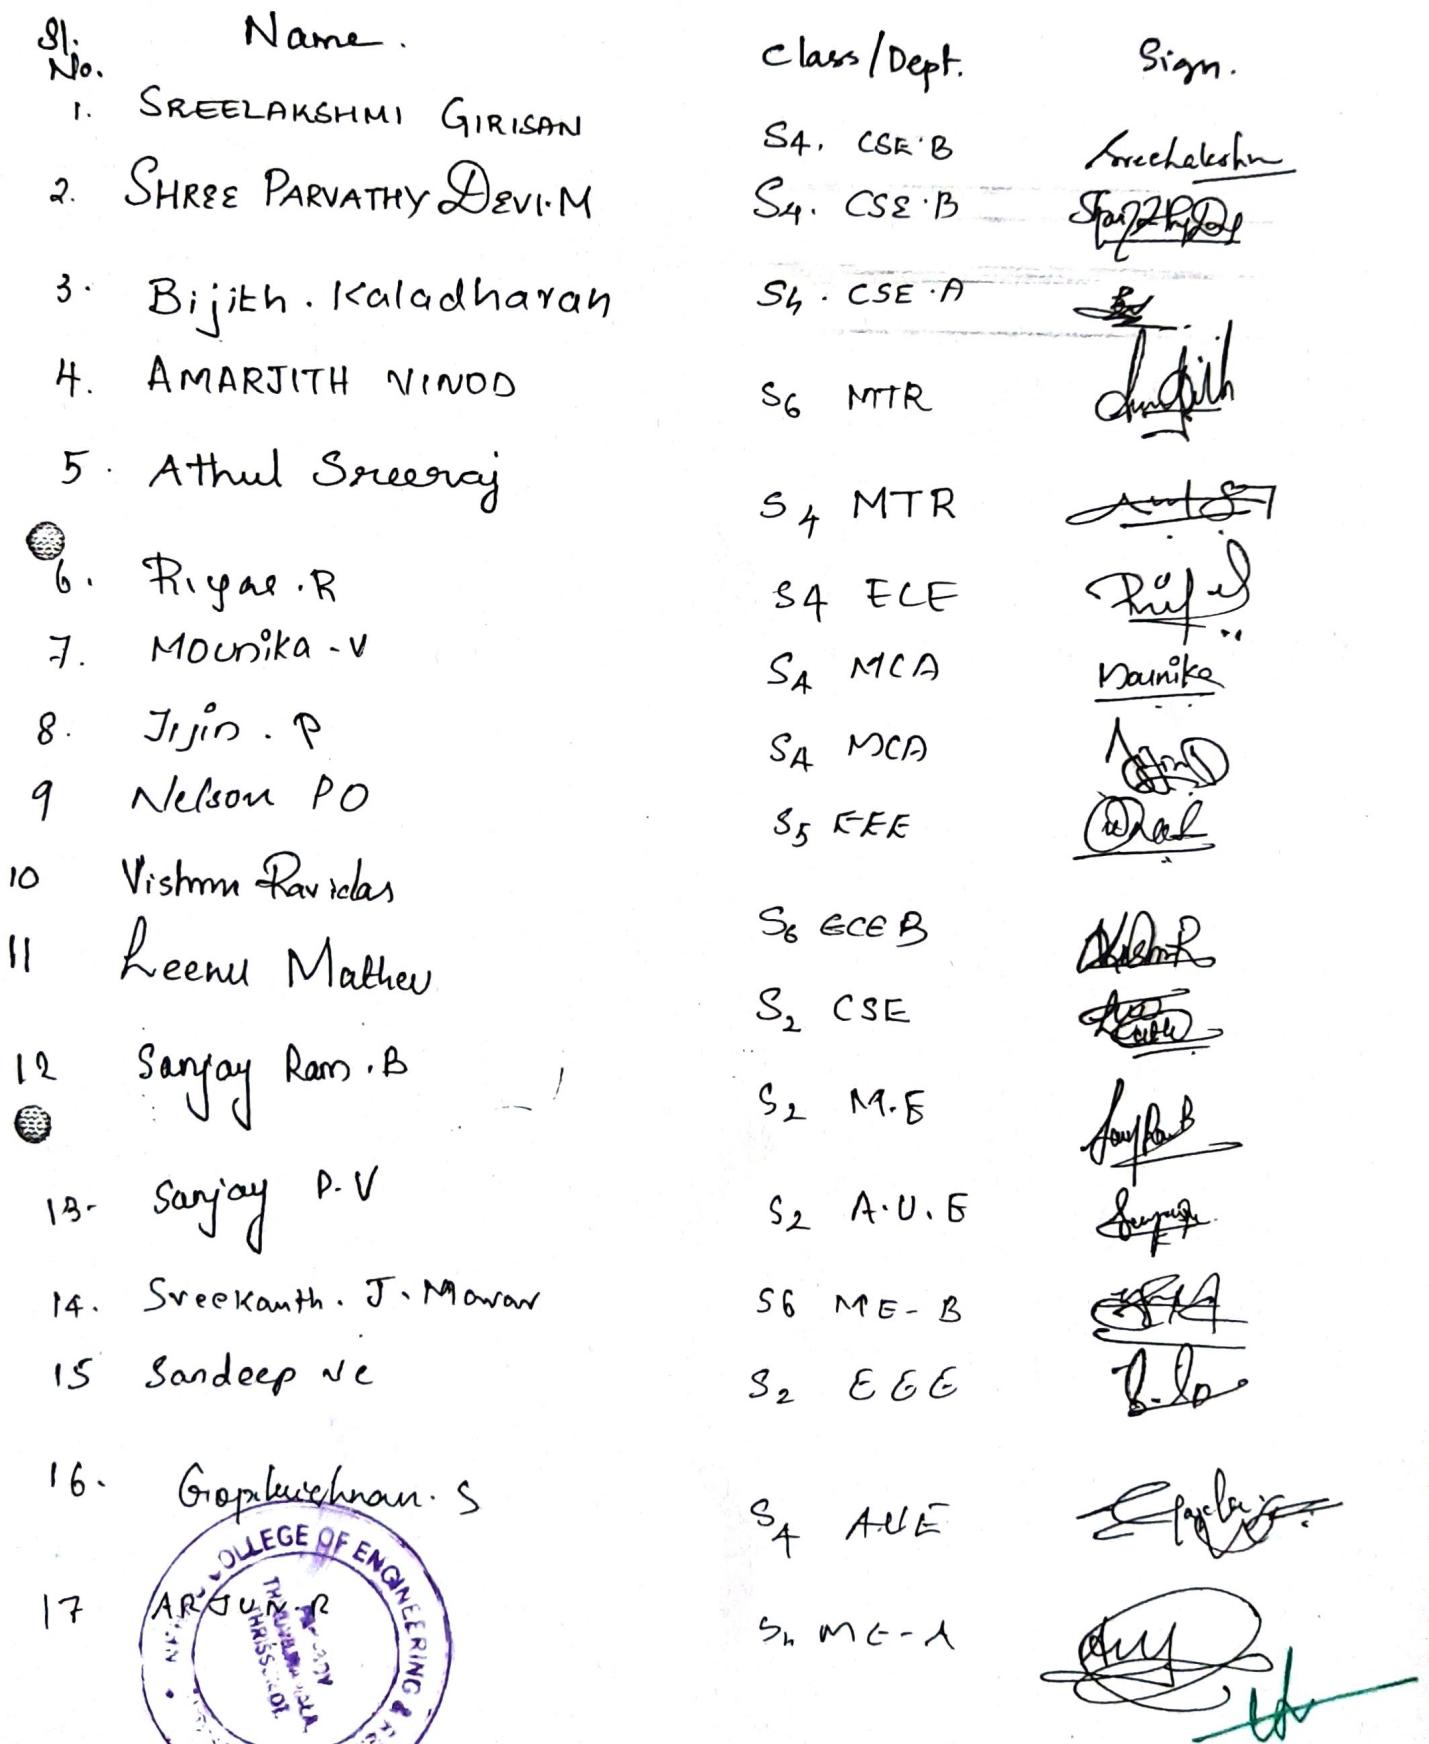 Sl. No. Name. Class/Dept. Sign.
1. SREELAKSHMI GIRISAN S4. CSE·B Sreelakshmi
2. SHREE PARVATHY DEVI·M S4. CSE·B
3. Bijith. Kaladharan S4. CSE·A
4. AMARJITH VINOD S6 MTR
5. Athul Sreeraj S4 MTR
6. Riyas.R S4 ECE
7. Mounika-V S4 MCA Mounika
8. Jijin. P S4 MCA
9 Nelson PO S5 EEE
10 Vishnu Ravidas S6 ECE B
11 Leenu Mathew S2 CSE
12 Sanjay Ram.B S2 M.E
13- Sanjay P.V S2 A.U.E
14. Sreekanth. J. Marar S6 ME-B
15 Sandeep S2 EEE
16. Gopikrishnan. S S4 AUE
17 ARJUN.R S4 ME-A
COLLEGE OF ENGINEERING &